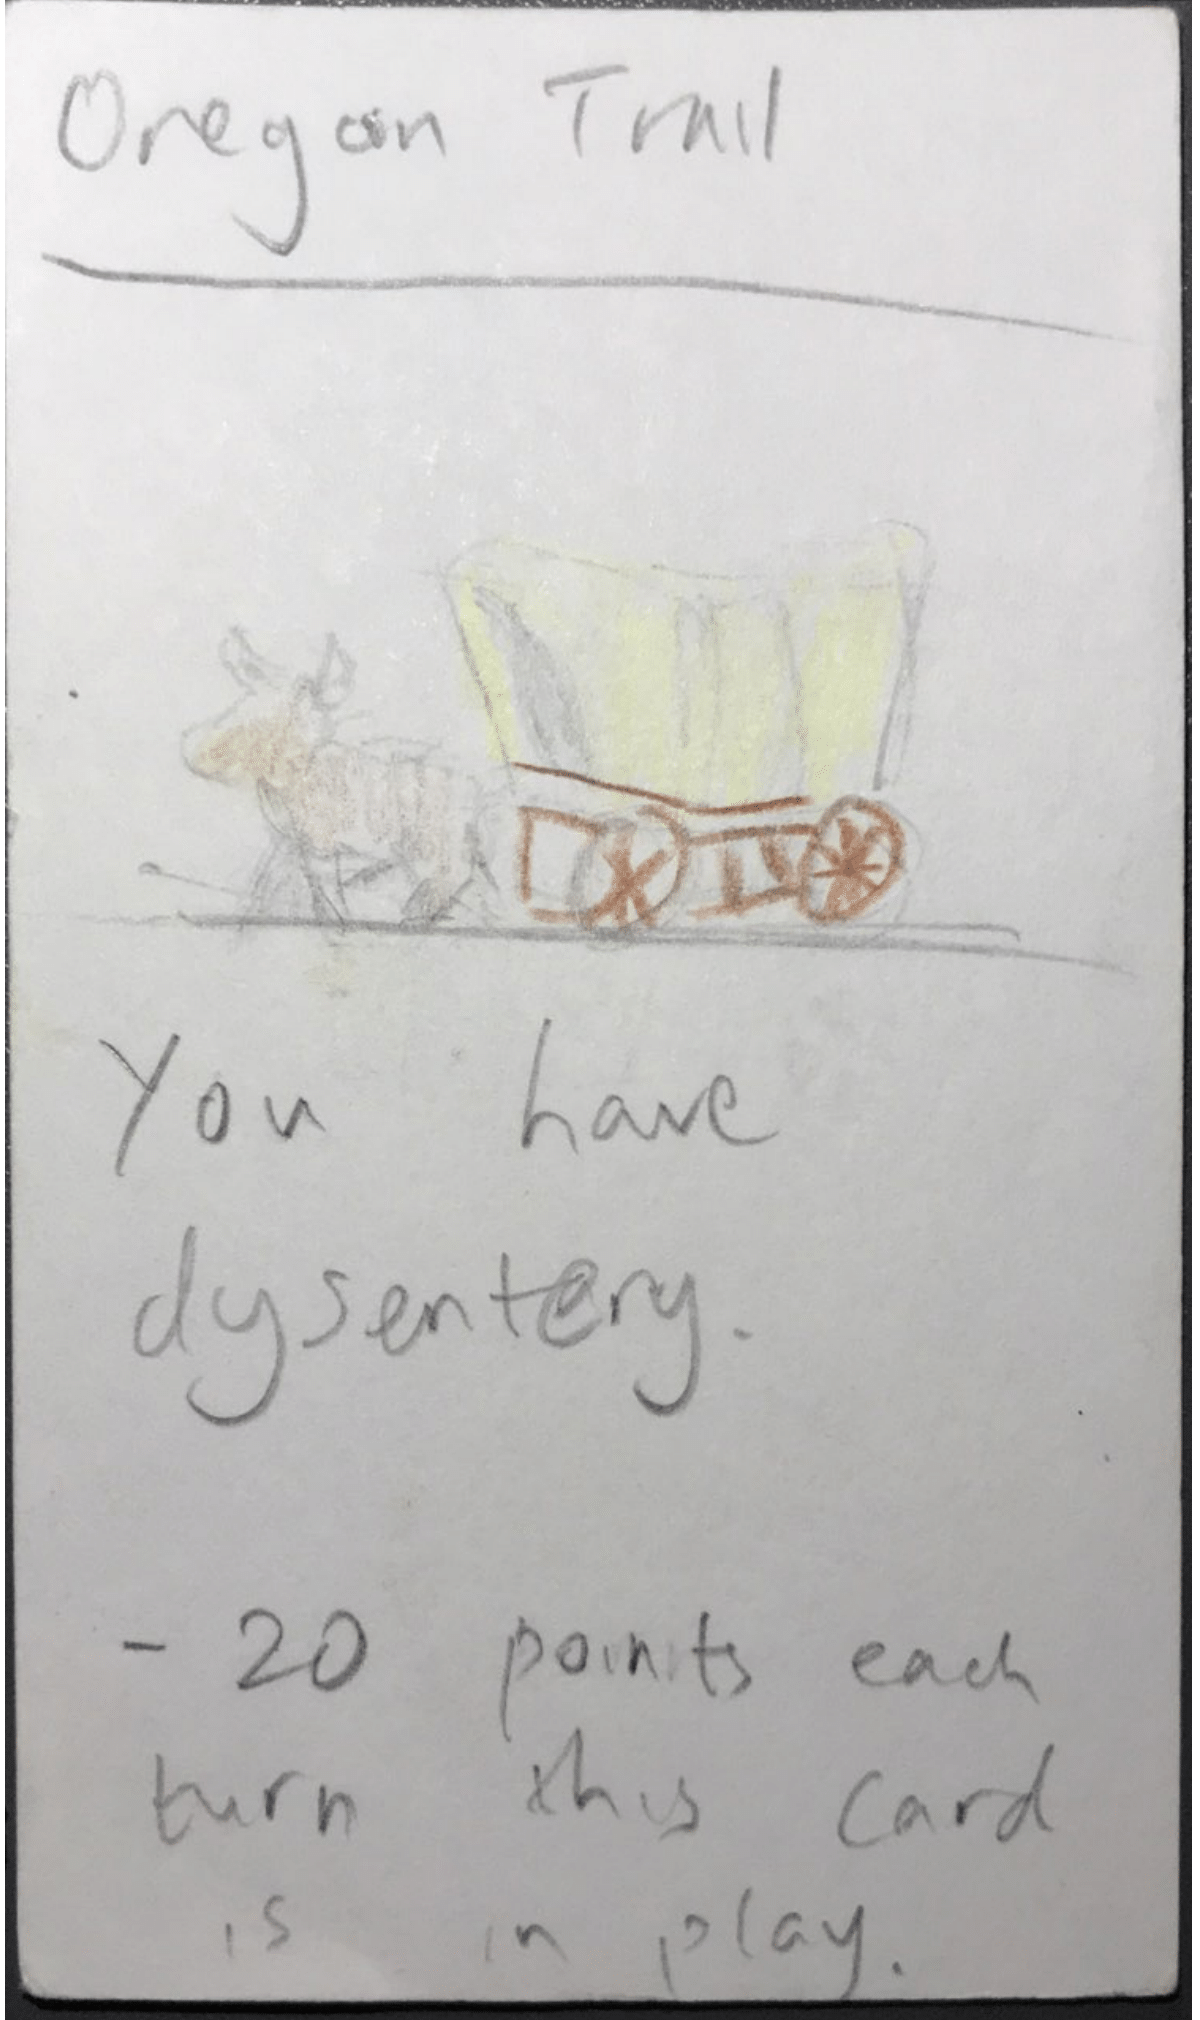 Oregon Trail
You have
dysentery.
- 20 points each
turn this card
is in play.